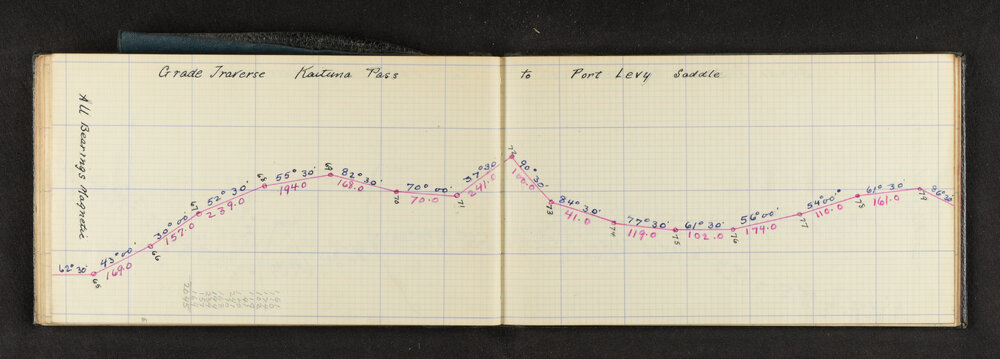 Grade Traverse Kaituna Pass to Port Levy Saddle
All Bearings Magnetic
62° 30'
65
43° 00'
169.0
66
30° 00'
157.0
67
52° 30'
239.0
68
55° 30'
194.0
69
82° 30'
168.0
70
70° 00'
70.0
71
37° 30'
241.0
72
90° 30'
100.0
73
84° 30'
41.0
74
77° 30'
119.0
75
61° 30'
102.0
76
56° 00'
174.0
77
54° 00'
110.0
78
61° 30'
161.0
79
86° 30'
2045